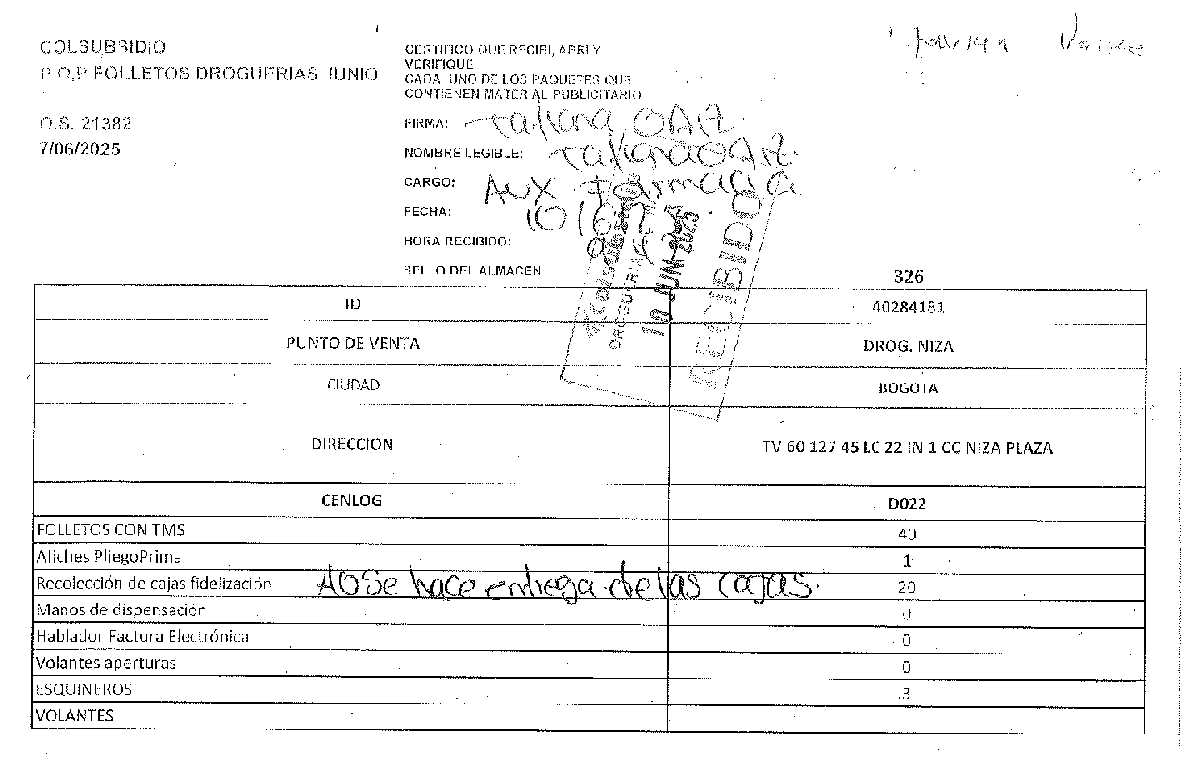 COLSUBSIDIO
P.O.P FOLLETOS DROGUERIAS JUNIO
O.S. 21382
7/06/2025
CERTIFICO QUE RECIBI, ABRI Y
VERIFIQUE
CADA UNO DE LOS PAQUETES QUE
CONTIENEN MATERIAL PUBLICITARIO
FIRMA:
NOMBRE LEGIBLE:
CARGO: Aux Farmacia
FECHA:
HORA RECIBIDO:
SELLO DEL ALMACEN
COLSUBSIDIO
10 JUN 2025
RECIBIDO
326
ID 40284181
PUNTO DE VENTA DROG. NIZA
CIUDAD BOGOTA
DIRECCION TV 60 127 45 LC 22 IN 1 CC NIZA PLAZA
CENLOG D022
FOLLETOS CON TMS 40
Afiches PliegoPrime 1
Recolección de cajas fidelización se hace entrega de las cajas. 20
Manos de dispensación 0
Hablador Factura Electrónica 0
Volantes aperturas 0
ESQUINEROS 3
VOLANTES